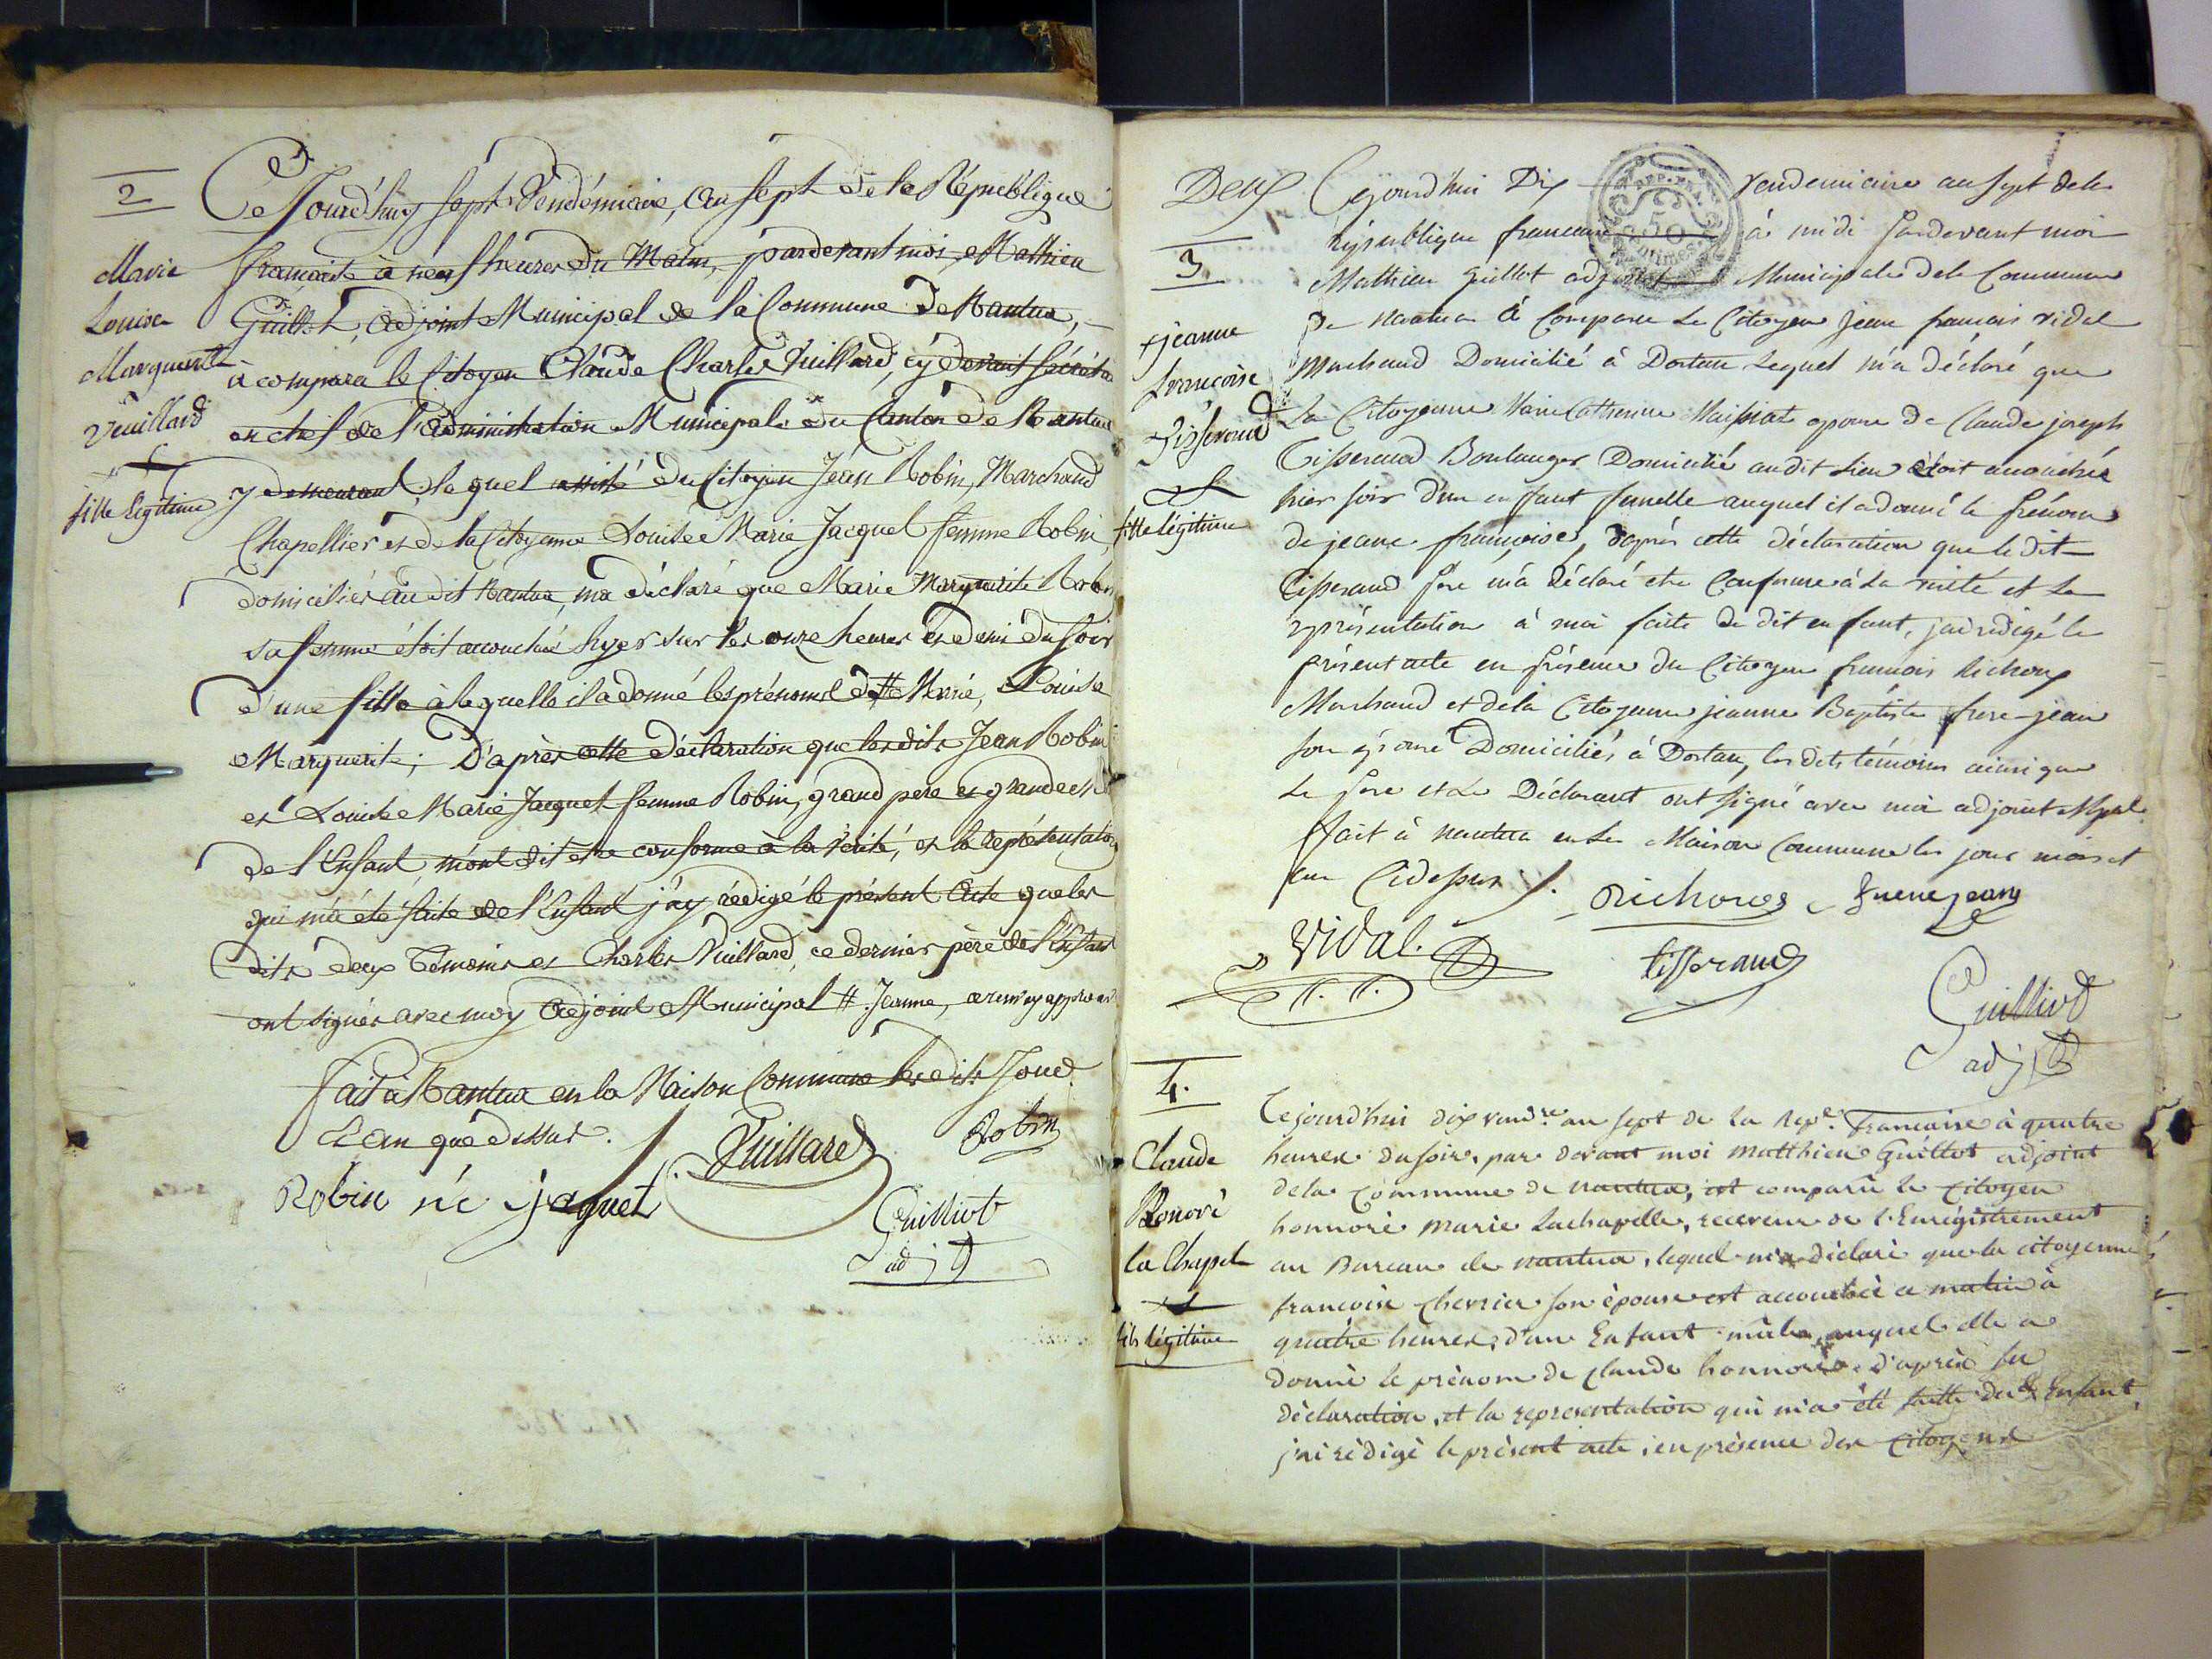 2
Marie
Louise
Marguerite
Vuillard
fille légitime
Cejourd'huy sept Vendémiaire, an sept de la République
francaise à neuf heures du Matin, pardevant moi, Mathieu
Guilliot, adjoint Municipal de la Commune de Nantua,
à comparu le Citoyen Claude Charles Vuillard, cy devant sécréta
en chef de l'administration Municipale du Canton de Nantua
y demeurant, lequel assisté du Citoyen Jean Robin, Marchand
Chapellier et de la Citoyenne Louise Marie Jacquet femme Robin,
domiciliés au dit Nantua, m'a déclaré que Marie Marguerite Robin
sa femme étoit accouchée hyer sur les onze heures et demi du soir
d'une fille à laquelle il a donné les prénoms de # Marie, Louise
Marguerite; D'après cette déclaration que lesdits Jean Robin
et Louise Marie Jacquet femme Robin, grand pere et grande
de l'Enfant m'ont dit etre conforme à la vérité, et la représentation
qui m'a été faite de l'Enfant j'ay rédigé le présent Acte que les
dits deux Témoins et Charles Vuillard, ce dernier père de l'Enfant
ont signés avec moy adjoint Municipal # Jeanne,
fait à Nantua en la Maison Commune les dits Jour
& an que dessus.
Vuillard Robin
Robin né jaquet
Guilliot
adjt
Deux
3
jeanne
francoise
Tisserand
fille légitime
Cejourd'hui Dix Vendemiaire an sept dela
République francaise à midi pardevant moi
REP. FRA.
50
Mathieu Guillot adjoint Municipale dela Commune
De nantua à Comparu Le Citoyen Jean francois vidal
Marchand Domicilié à Dortan Lequel m'a déclaré que
La Citoyenne Marie Catherine Maissiat epouse de Claude joseph
Tisserand Boulanger Domicilié audit Lieu étoit accouchée
hier soir d'un enfant femelle auquel il a donné le prénom
de jeanne francoise, d'après cette déclaration que ledit
Tisserand pere m'a déclaré etre Conforme à La vérité et La
représentation à moi faite du dit enfant, j'ai redigé le
présent acte en présence du Citoyen francois Richoux
Marchand et dela Citoyenne jeanne Baptiste frere-jean
son épouse Domiciliés à Dortan, les dits témoins ainsi que
Le pere et Le Déclarant ont signé avec moi adjoint Mpal.
fait à nantua en La Maison Commune les jour mois et
an Cidessus
Vidal Tisserand
Guilliot
adjt
4.
Claude
Honoré
la Chapelle
fils légitime
Cejourd'hui dix vendre an sept de la Repe francaise à quatre
heures du soir, par devant moi Matthieu Guillot adjoint
de la Commune de nantua, est comparu le Citoyen
honnoré Marie Lachapelle, receveur de l'Enregistrement
au Bureau de nantua, lequel m'a déclaré que la citoyenne
francoise Chevrier son épouse est accouchée ce matin à
quatre heures, d'un Enfant mâle, auquel elle a
donné le prénom de claude honnoré, d'après sa
déclaration, et la representation qui m'a été faitte dudt Enfant,
j'ai rédigé le présent acte, en présence des Citoyens